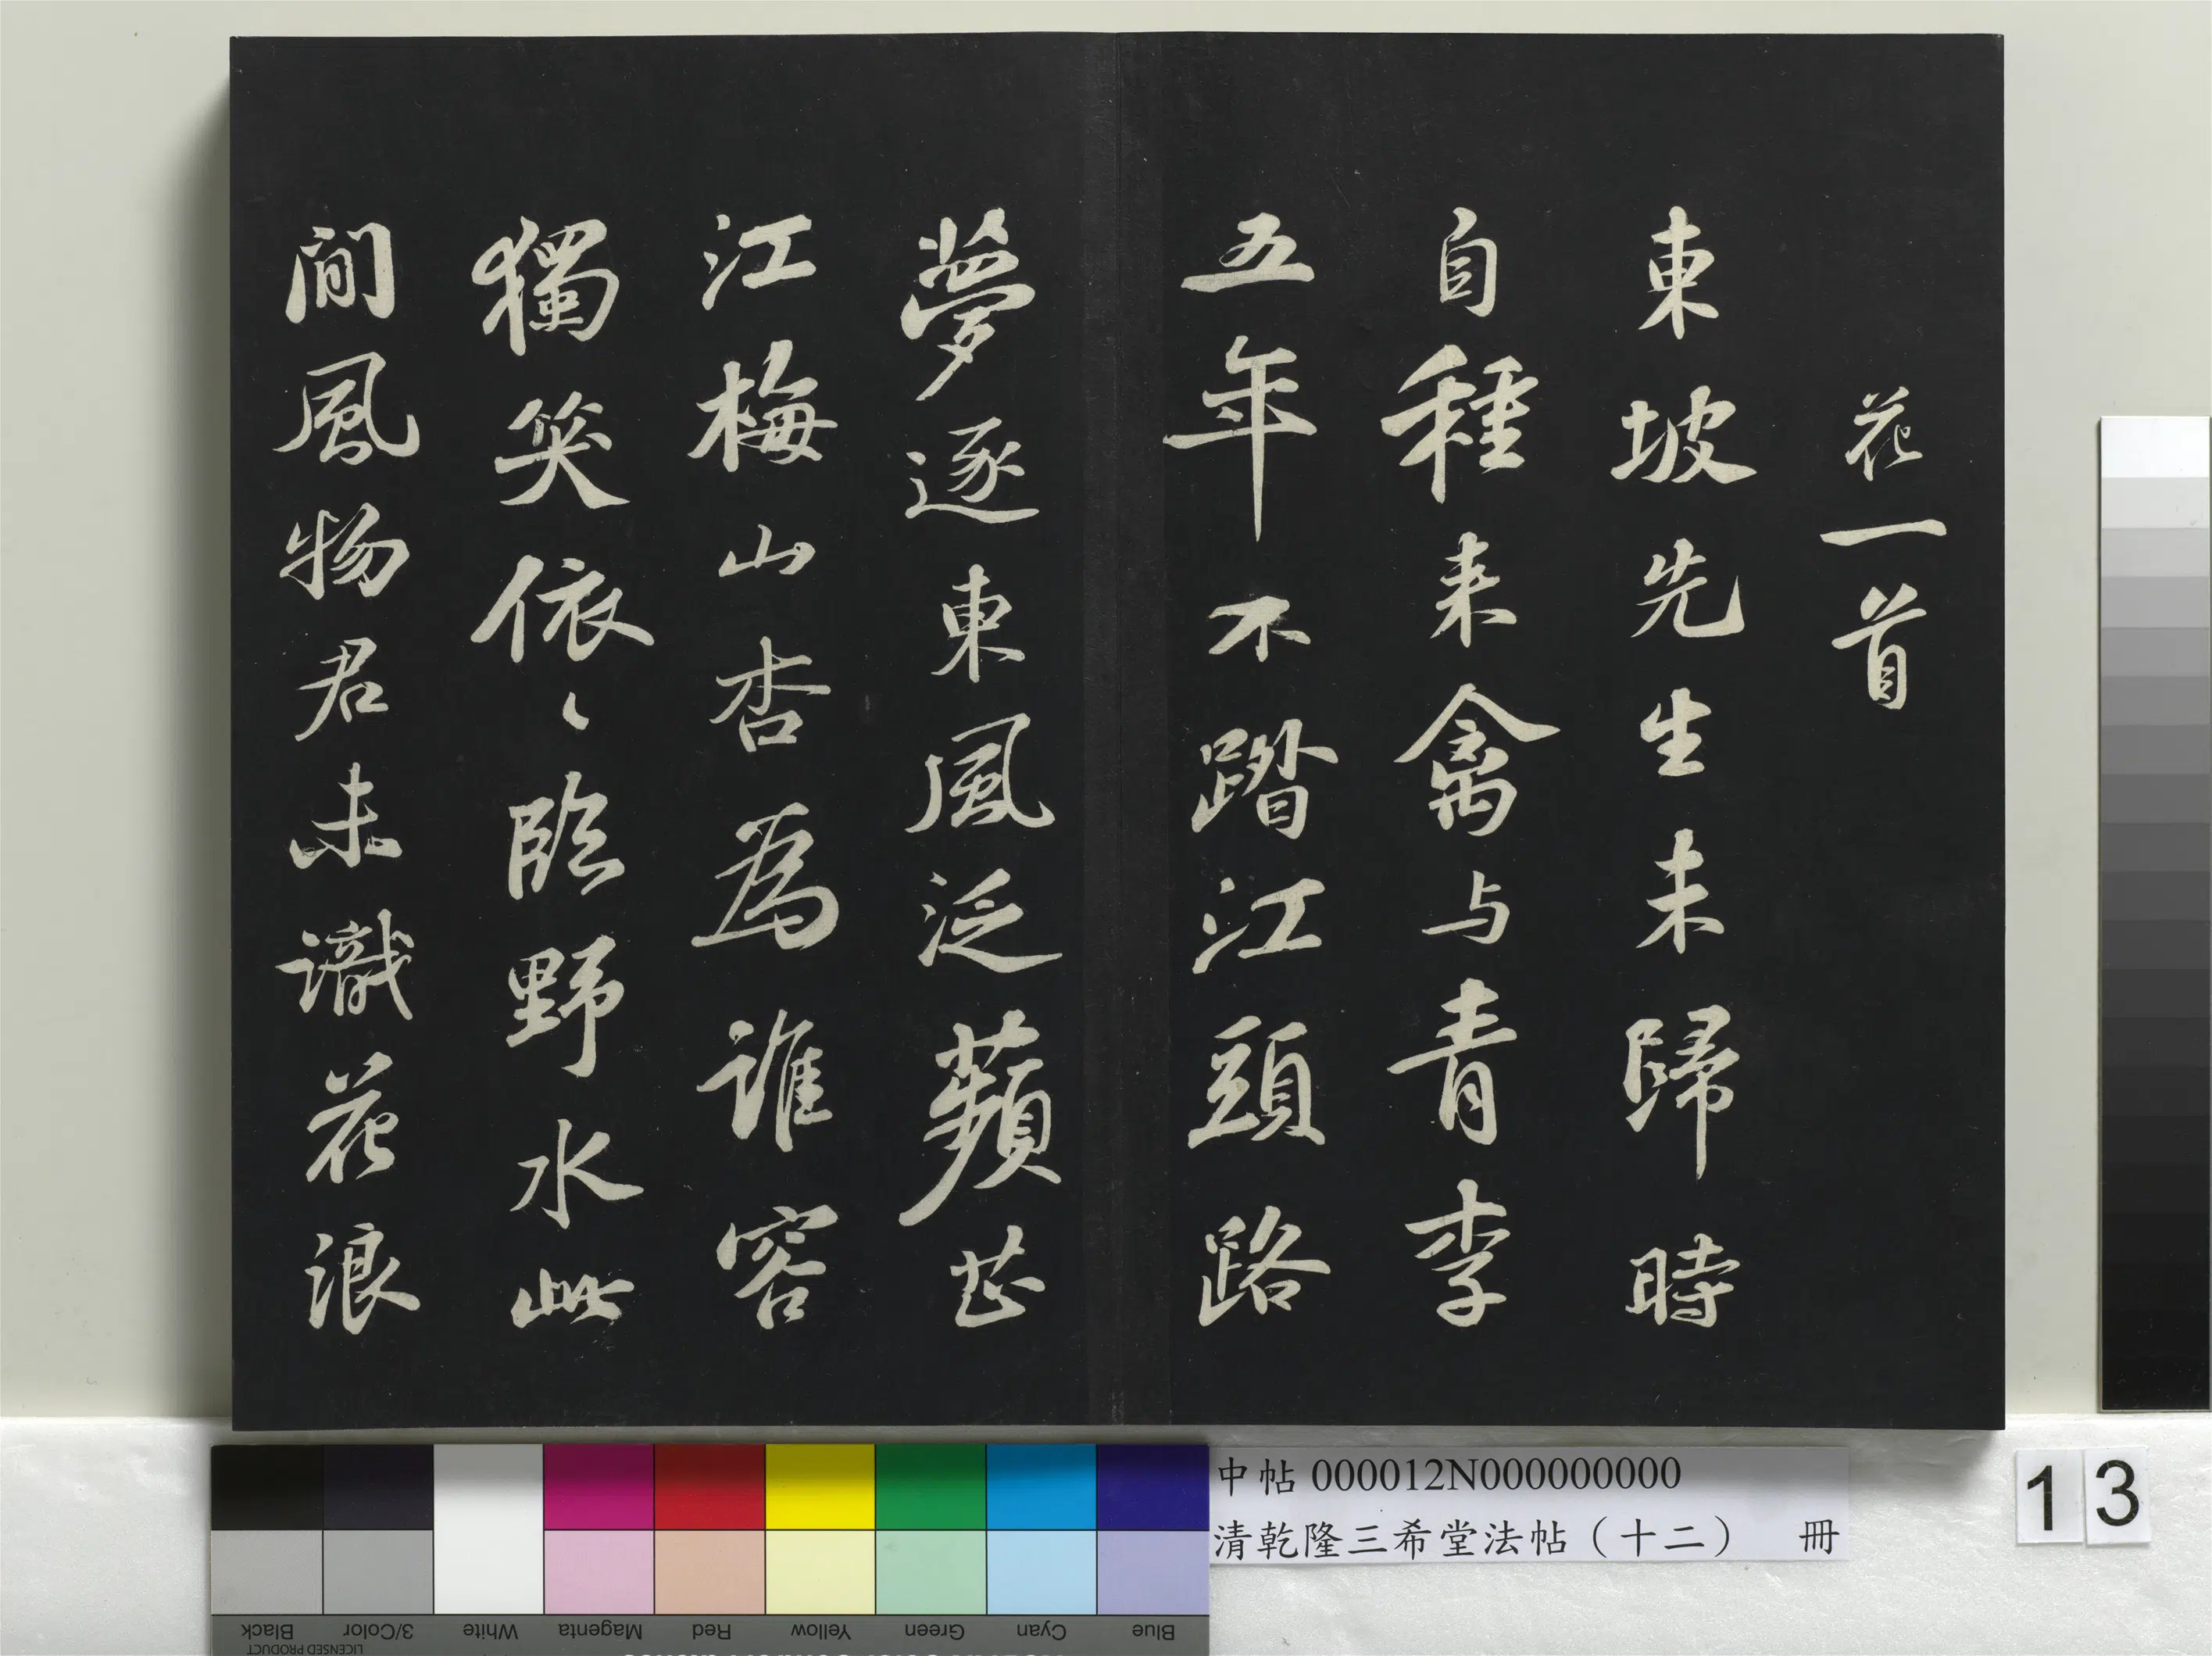 花一首
東坡先生未歸時
自種来禽与青李
五年不踏江頭路
夢逐東風泛蘋芷
江梅山杏為誰容
獨笑依〻臨野水此
間風物君未識花浪
中帖 000012N000000000
清乾隆三希堂法帖（十二） 冊
13
Black
3/Color
White
Magenta
Red
Yellow
Green
Cyan
Blue
LICENSED PRODUCT